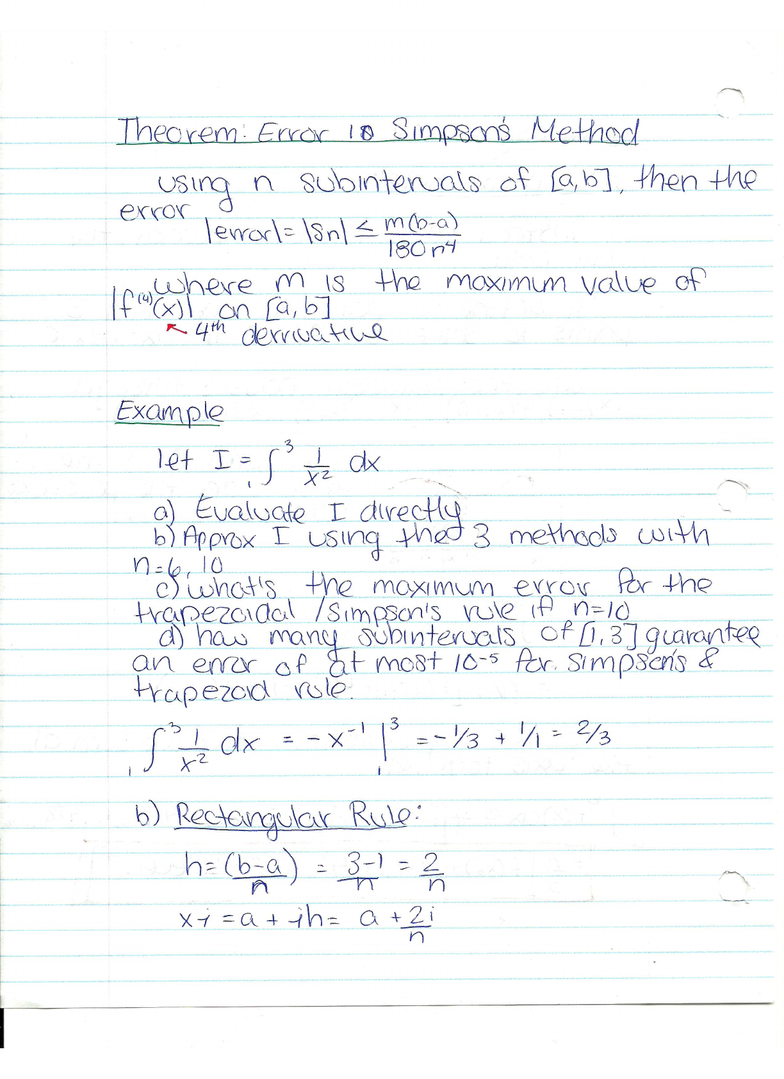 Theorem: Error is Simpson's Method
using n subintervals of [a,b], then the
error
|error| = |Sn| ≤ m(b-a)/180n⁴
where m is the maximum value of
|f⁽⁴⁾(x)| on [a,b]
↖ 4th derrivative
Example
let I = ∫₁³ 1/x² dx
a) Evaluate I directly
b) Approx I using the 3 methods with
n=6, 10
c) what's the maximum error for the
trapezoidal /Simpson's rule if n=10
d) how many subintervals of [1,3] guarantee
an error of at most 10⁻⁵ for Simpson's &
trapezoid rule.
∫₁³ 1/x² dx = -x⁻¹ |₁³ = -1/3 + 1/1 = 2/3
b) Rectangular Rule:
h = (b-a)/n = 3-1/n = 2/n
xi = a + ih = a + 2i/n